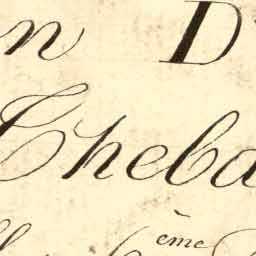 n D
Theba
ème